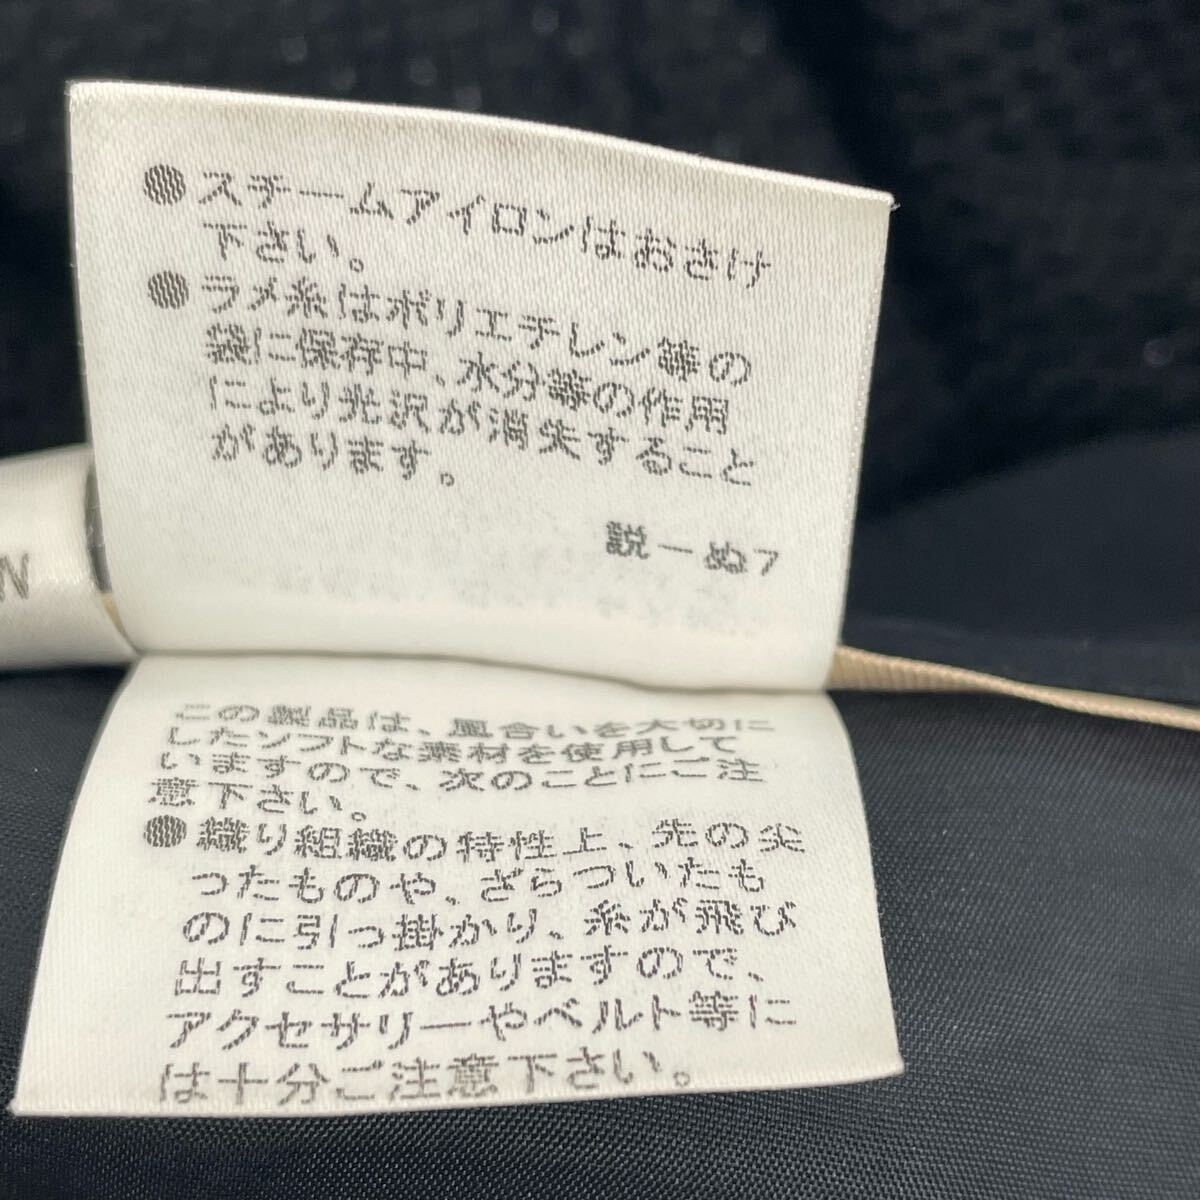 ●スチームアイロンはおさけ
下さい。
●ラメ糸はポリエチレン等の
袋に保存中、水分等の作用
により光沢が消失すること
があります。
説ーぬ7
N
この製品は、風合いを大切に
したソフトな素材を使用して
いますので、次のことにご注
意下さい。
●織り組織の特性上、先の尖
ったものや、ざらついたも
のに引っ掛かり、糸が飛び
出すことがありますので、
アクセサリーやベルト等に
は十分ご注意下さい。